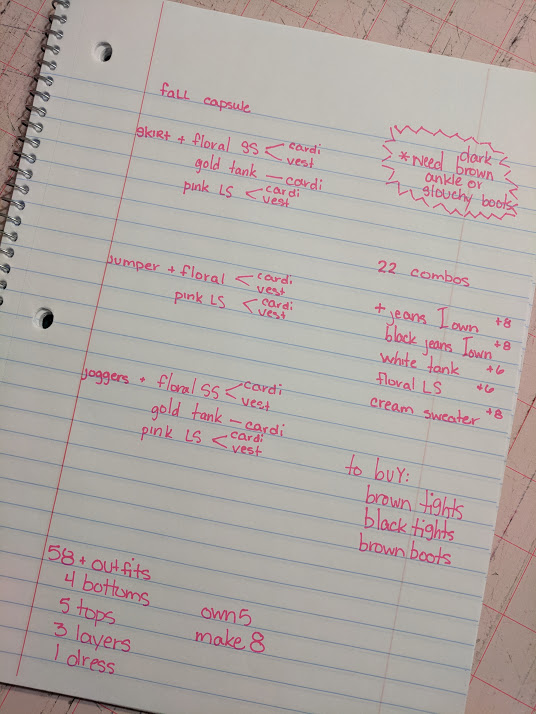 fall capsule
SKIRT + floral SS < cardi
vest
gold tank — cardi
pink LS < cardi
vest
* Need dark
brown
ankle or
slouchy boots
jumper + floral < cardi
vest
pink LS < cardi
vest
joggers + floral SS < cardi
vest
gold tank — cardi
pink LS < cardi
vest
22 combos
+ jeans I own +8
black jeans I own +8
white tank +6
floral LS +6
cream sweater +8
to buy:
brown tights
black tights
brown boots
58 + outfits
4 bottoms
5 tops
3 layers
1 dress
own 5
make 8